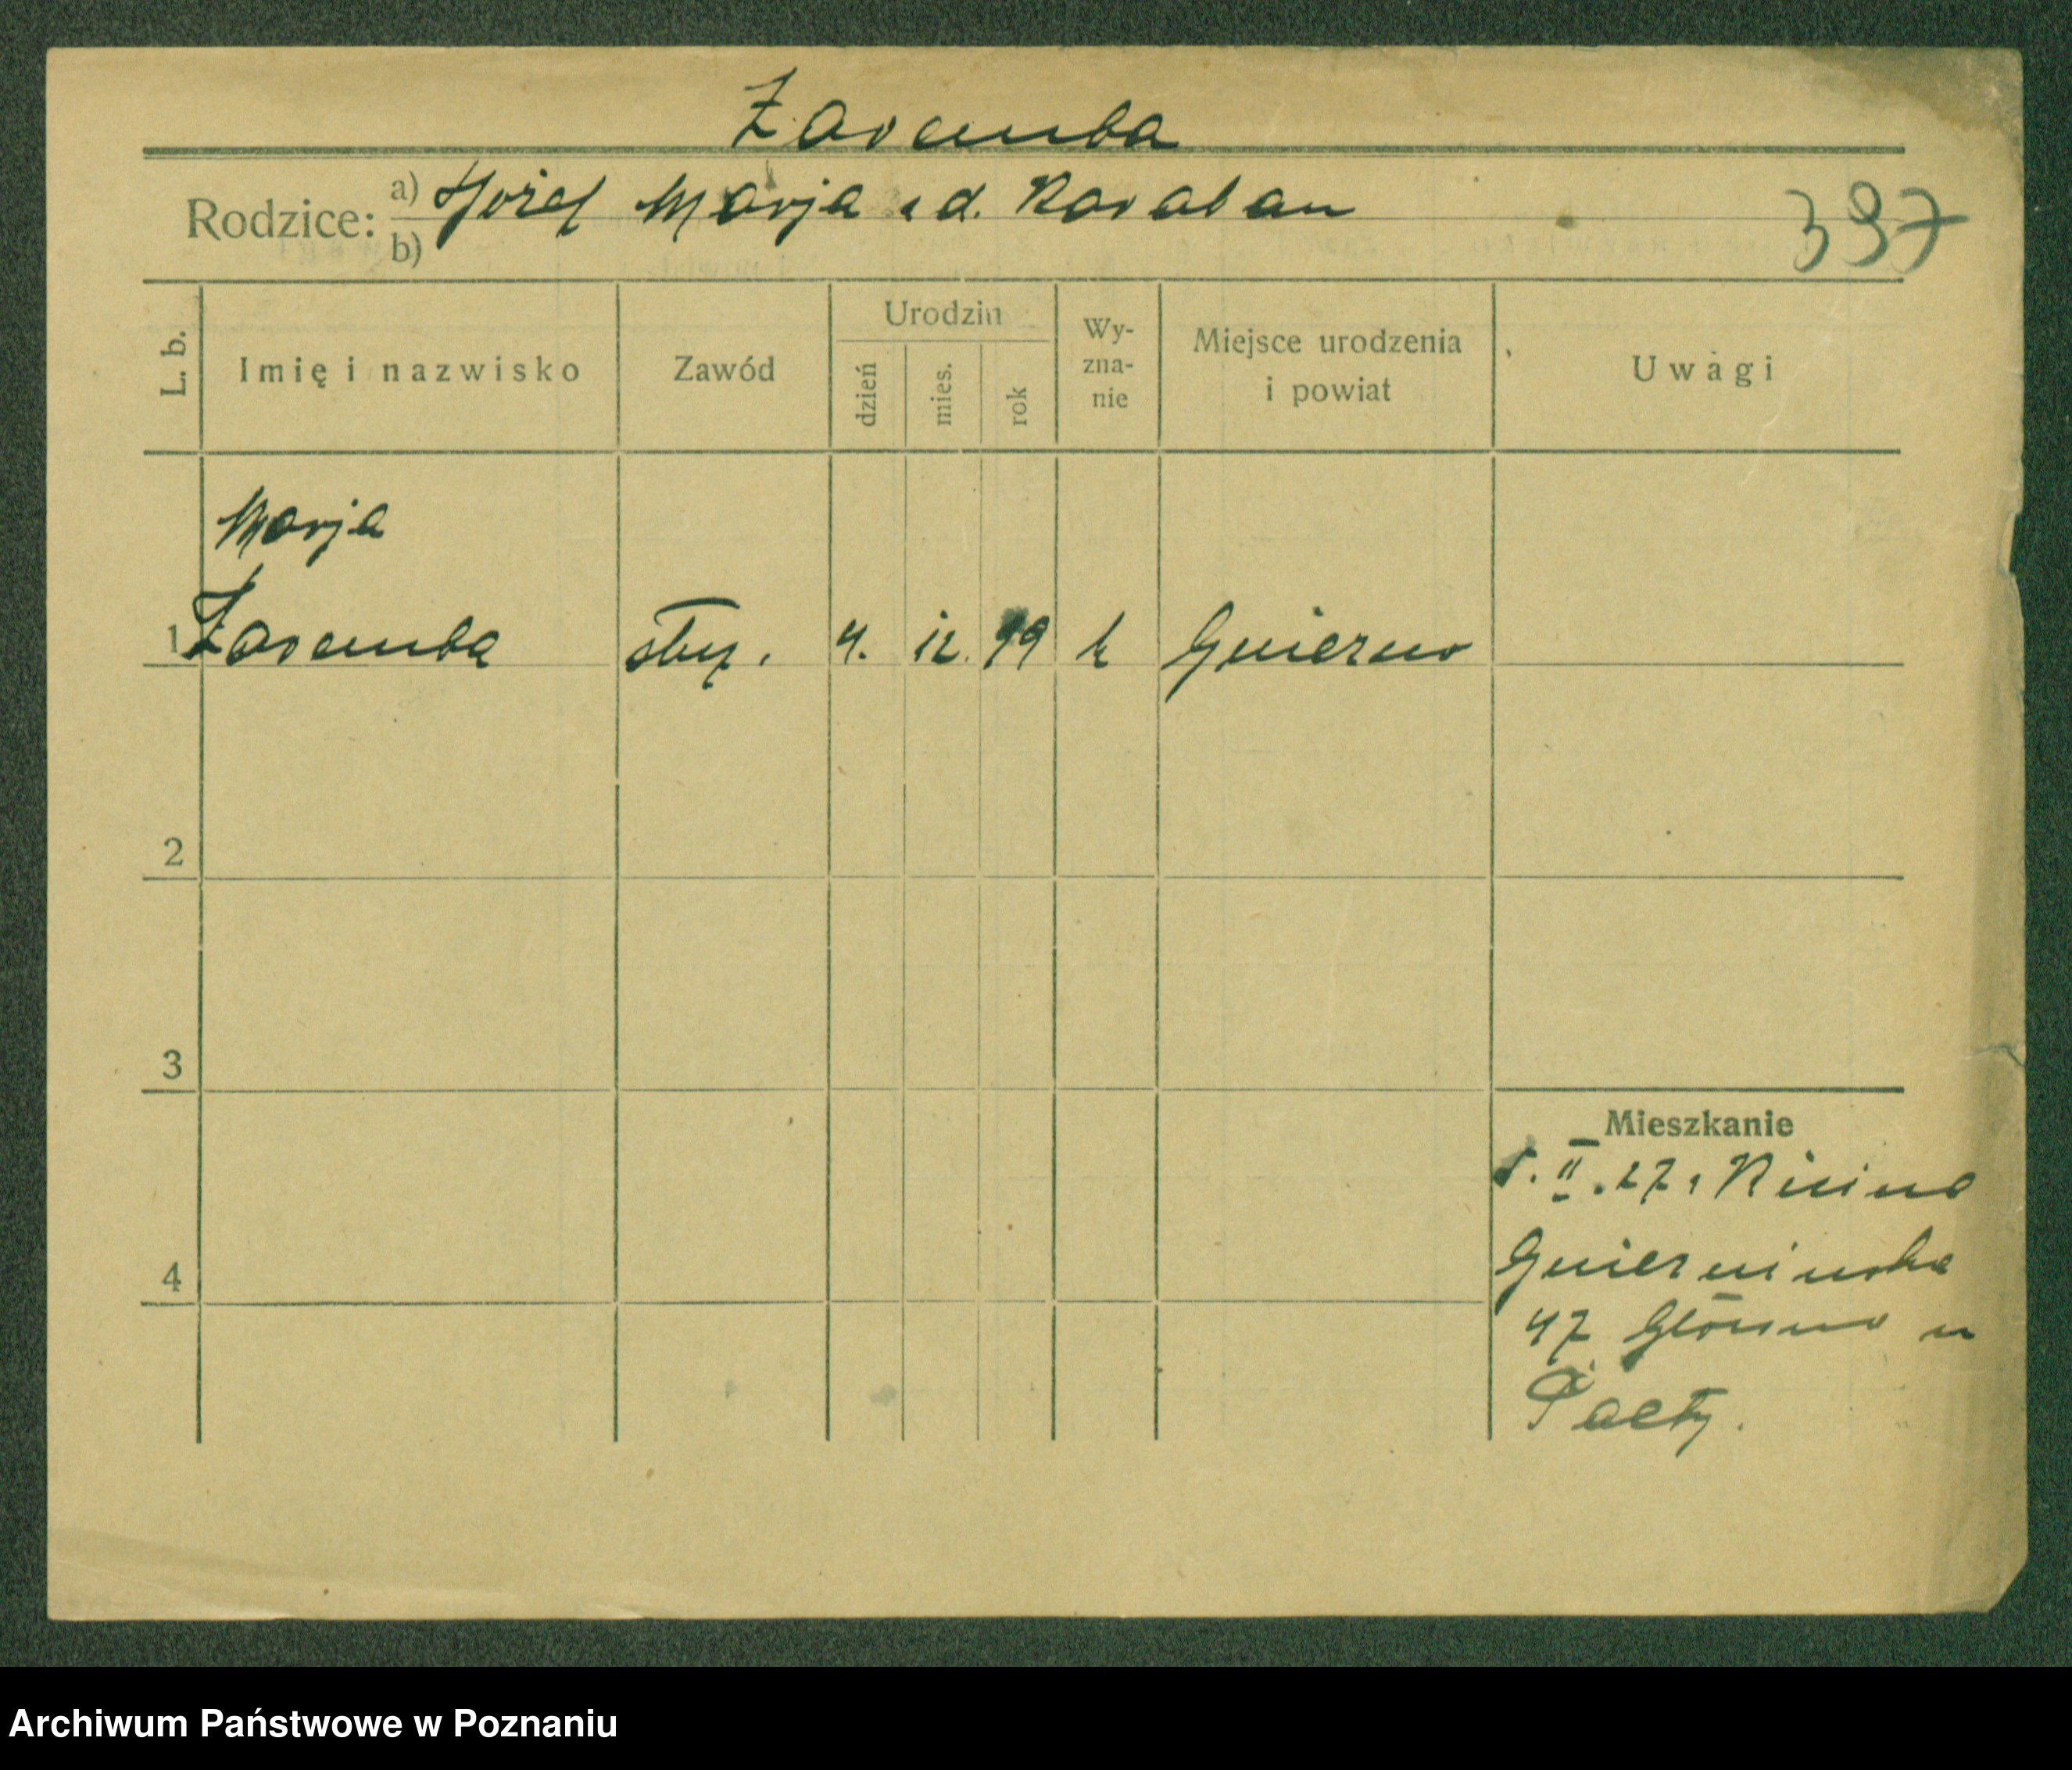 Zaremba
Rodzice: a) Józef Marja z d. Karaban
b)
397
L. b. Imię i nazwisko Zawód Urodzin dzień mies. rok Wy-zna-nie Miejsce urodzenia i powiat Uwagi
Marja
1 Zaremba służ. 4. 12. 99 k Gniezno
2
3
Mieszkanie
5. II. 27.
4 Gnieźnieńska
47 Główno u
Archiwum Państwowe w Poznaniu